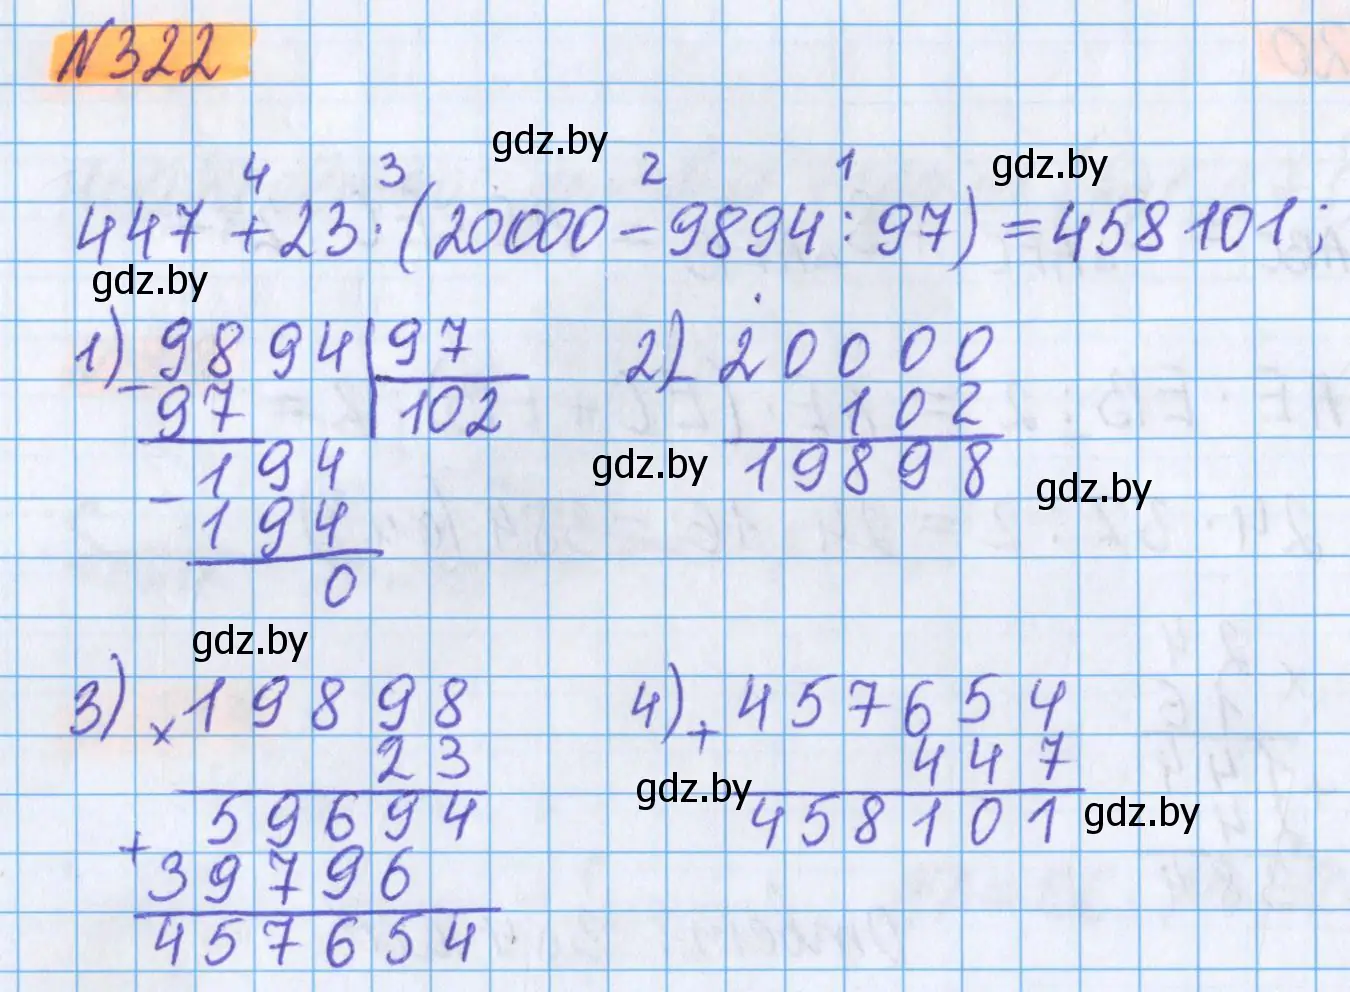 N322
gdz.by
4 3 2 1 gdz.by
447 + 23 · (20000 - 9894 : 97) = 458101;
gdz.by
1) 9894 | 97
- 97 | 102
- 194
194
0
2) - 20000
102
gdz.by 19898 gdz.by
gdz.by
3) × 19898
23
59694
+ 39796
457654
4) + 457654
447
gdz.by 458101 gdz.by